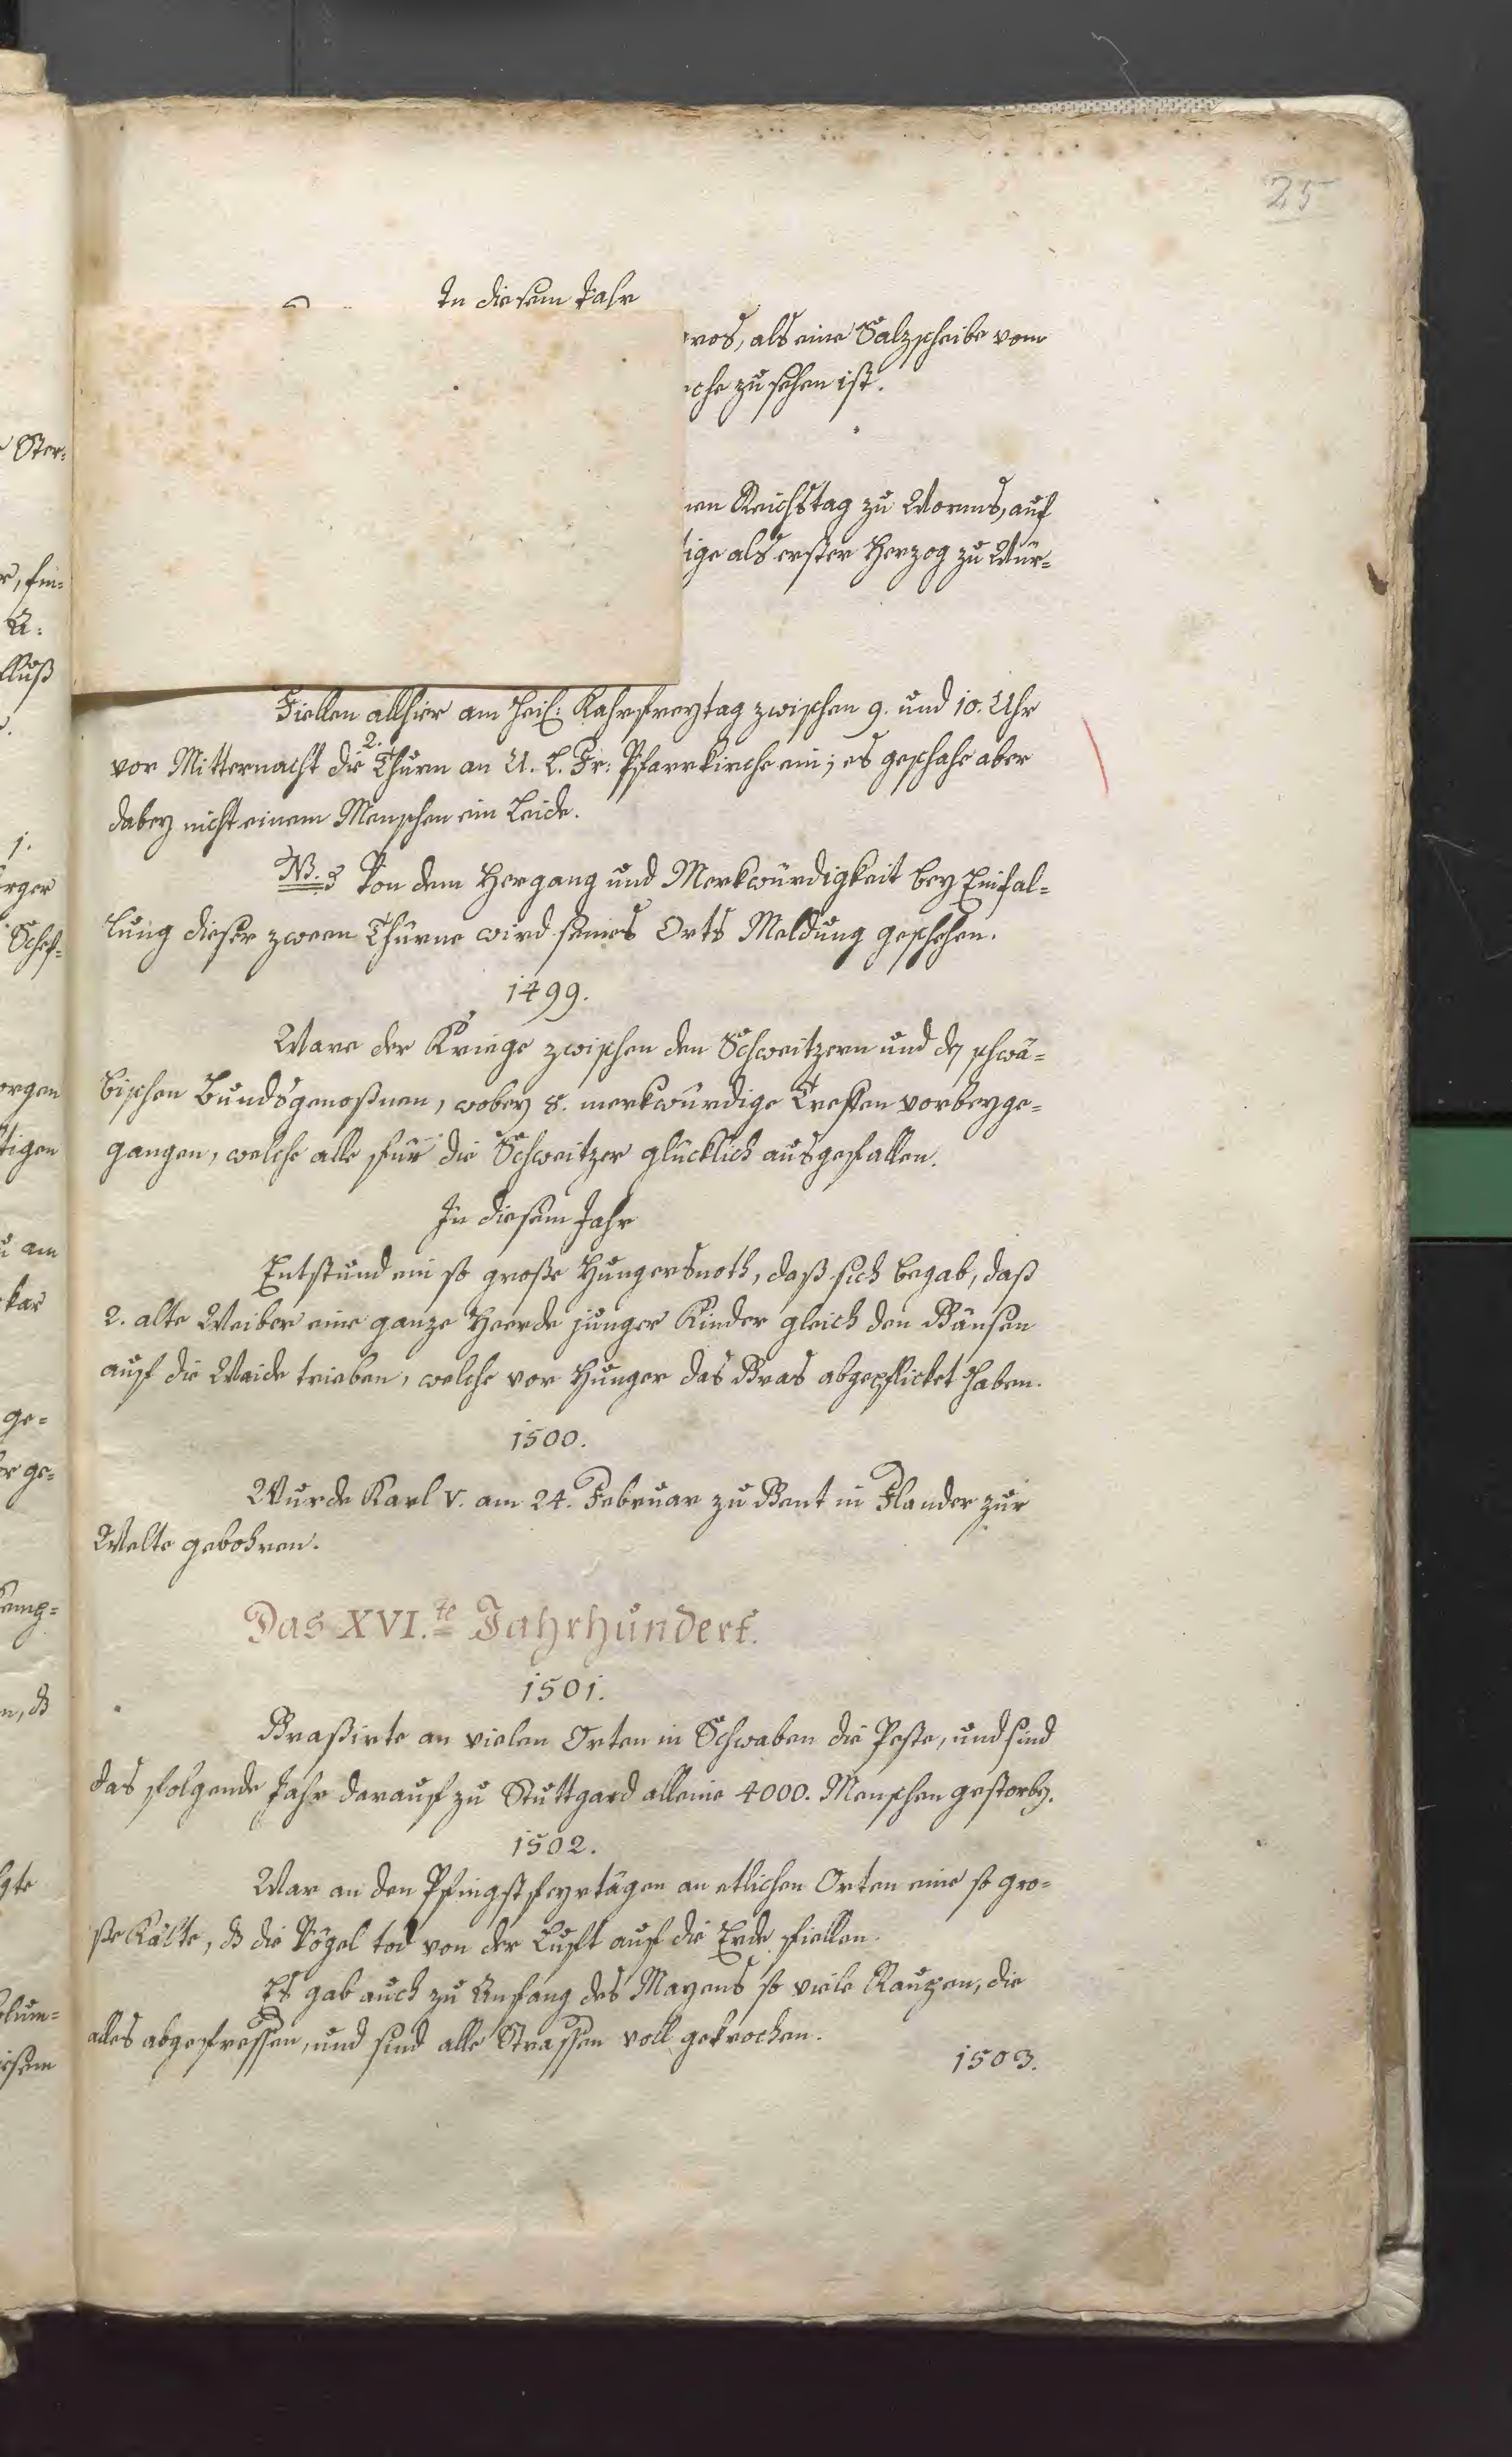 25
In diesem Jahr
ros, als eine Salzscheibe vom
che zu sehen ist.
nen Reichstag zu Worms, auf
ige als erster Herzog zu Wür=
Fiellen allhier am heil: Kahrfreytag zwischen 9. und 10. Uhr
vor Mitternacht die 2. Thürn an U. L. Fr: Pfarrkirche ein; es geschahe aber
dabey nicht einem Menschen ein Leide.
NB. Von dem Hergang und Merkwürdigkeit bey Einfal=
lung dieser zween Thürne wird seines Orts Meldung geschehen.
1499.
Ware der Kriege zwischen den Schweitzern und dē schwä=
bischen Bundsgenoßnen, wobey 8. merkwürdige Treffen vorbeyge=
gangen, welche alle für die Schweitzer glücklich ausgefallen.
In diesem Jahr
Entstund ein so große Hungersnoth, daß sich begab, daß
2. alte Weiber eine ganze Heerde junger Kinder gleich den Gänsen
auf die Weide trieben, welche vor Hunger das Gras abgepflicket haben.
1500.
Wurde Karl V. am 24. Februar zu Gent in Flander zur
Welte gebohren.
Das XVI.te Jahrhundert.
1501.
Graßirte an vielen Orten in Schwaben die Peste, und sind
das folgende Jahr darauf zu Stuttgard alleine 4000. Menschen gestorbē.
1502.
War an den Pfingstfeyrtägen an etlichen Orten eine so gro=
ße Kälte, dß die Vögel tod von der Luft auf die Erde fiellen.
Es gab auch zu Anfang des Mayens so viele Raupen, die
alles abgefressen, und sind alle Strassen voll gekrochen.
1503.